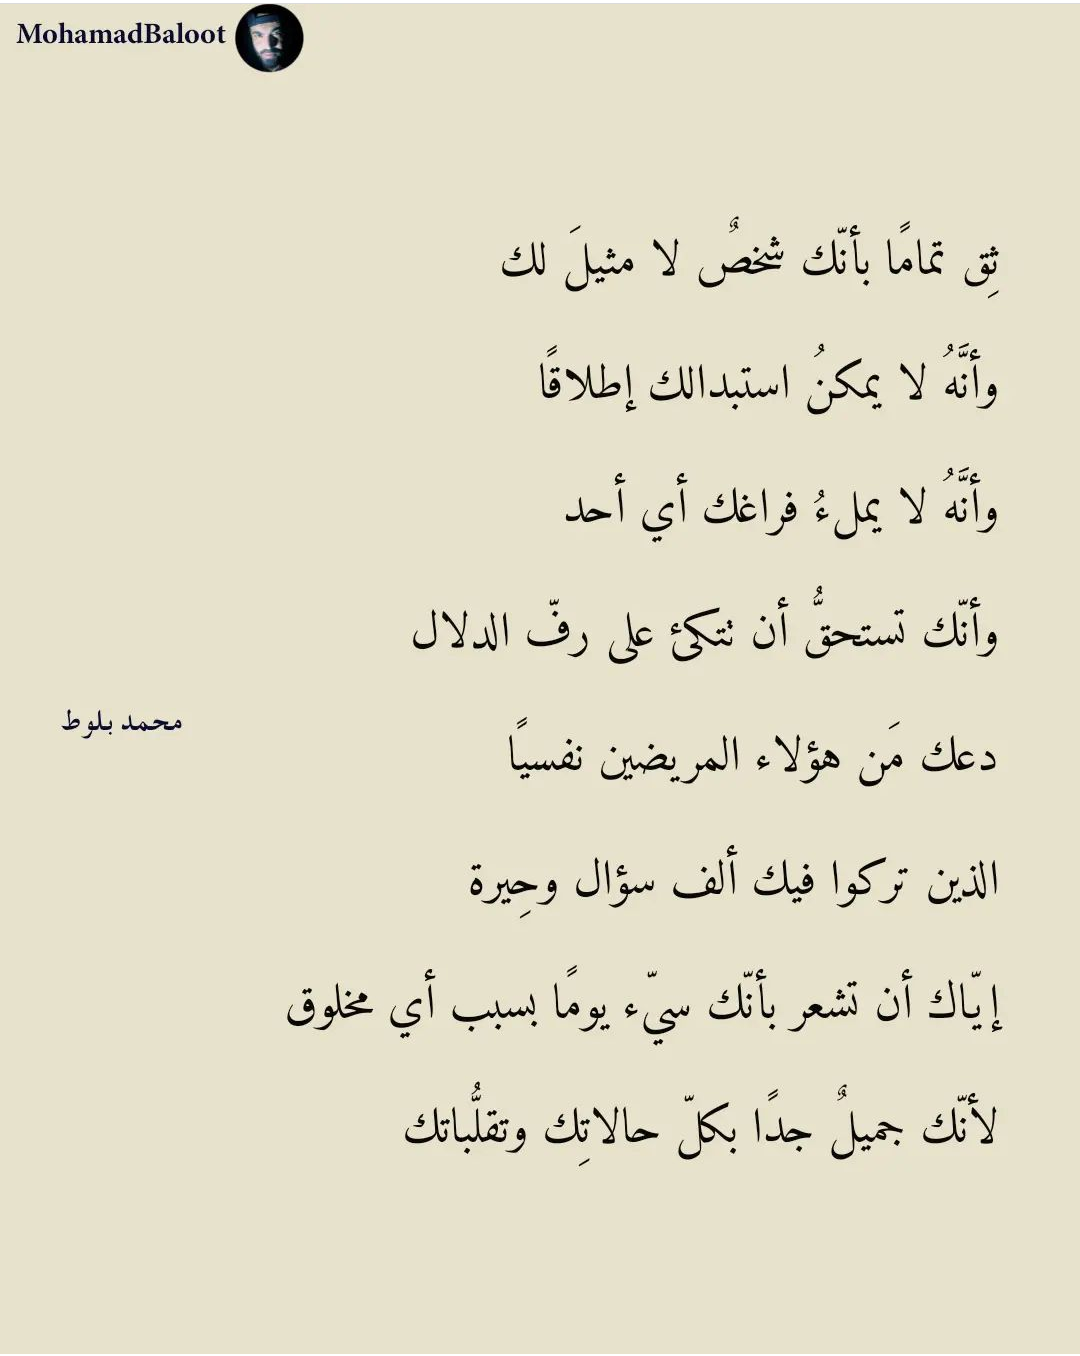 MohamadBaloot
ثِق تمامًا بأنّك شخصٌ لا مثيلَ لك
وأنَّهُ لا يمكنُ استبدالك إطلاقًا
وأنَّهُ لا يملءُ فراغك أي أحد
وأنّك تستحقُّ أن تتكئ على رفّ الدلال
محمد بلوط
دعك مَن هؤلاء المريضين نفسيًا
الذين تركوا فيك ألف سؤال وحِيرة
إيّاك أن تشعر بأنّك سيّء يومًا بسبب أي مخلوق
لأنّك جميلٌ جدًا بكلّ حالاتِك وتقلُّباتك